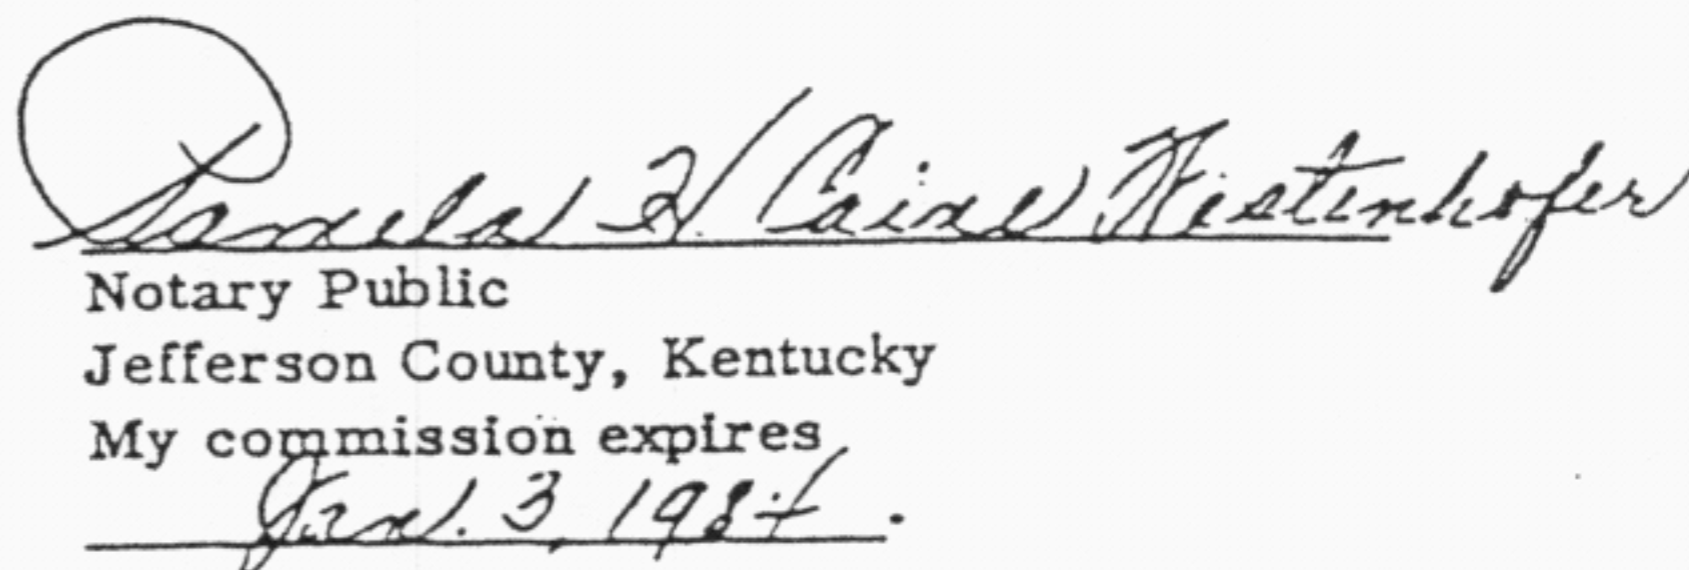 Pamela H. Caine Westenhofer
Notary Public
Jefferson County, Kentucky
My commission expires
Jan. 3, 1984.